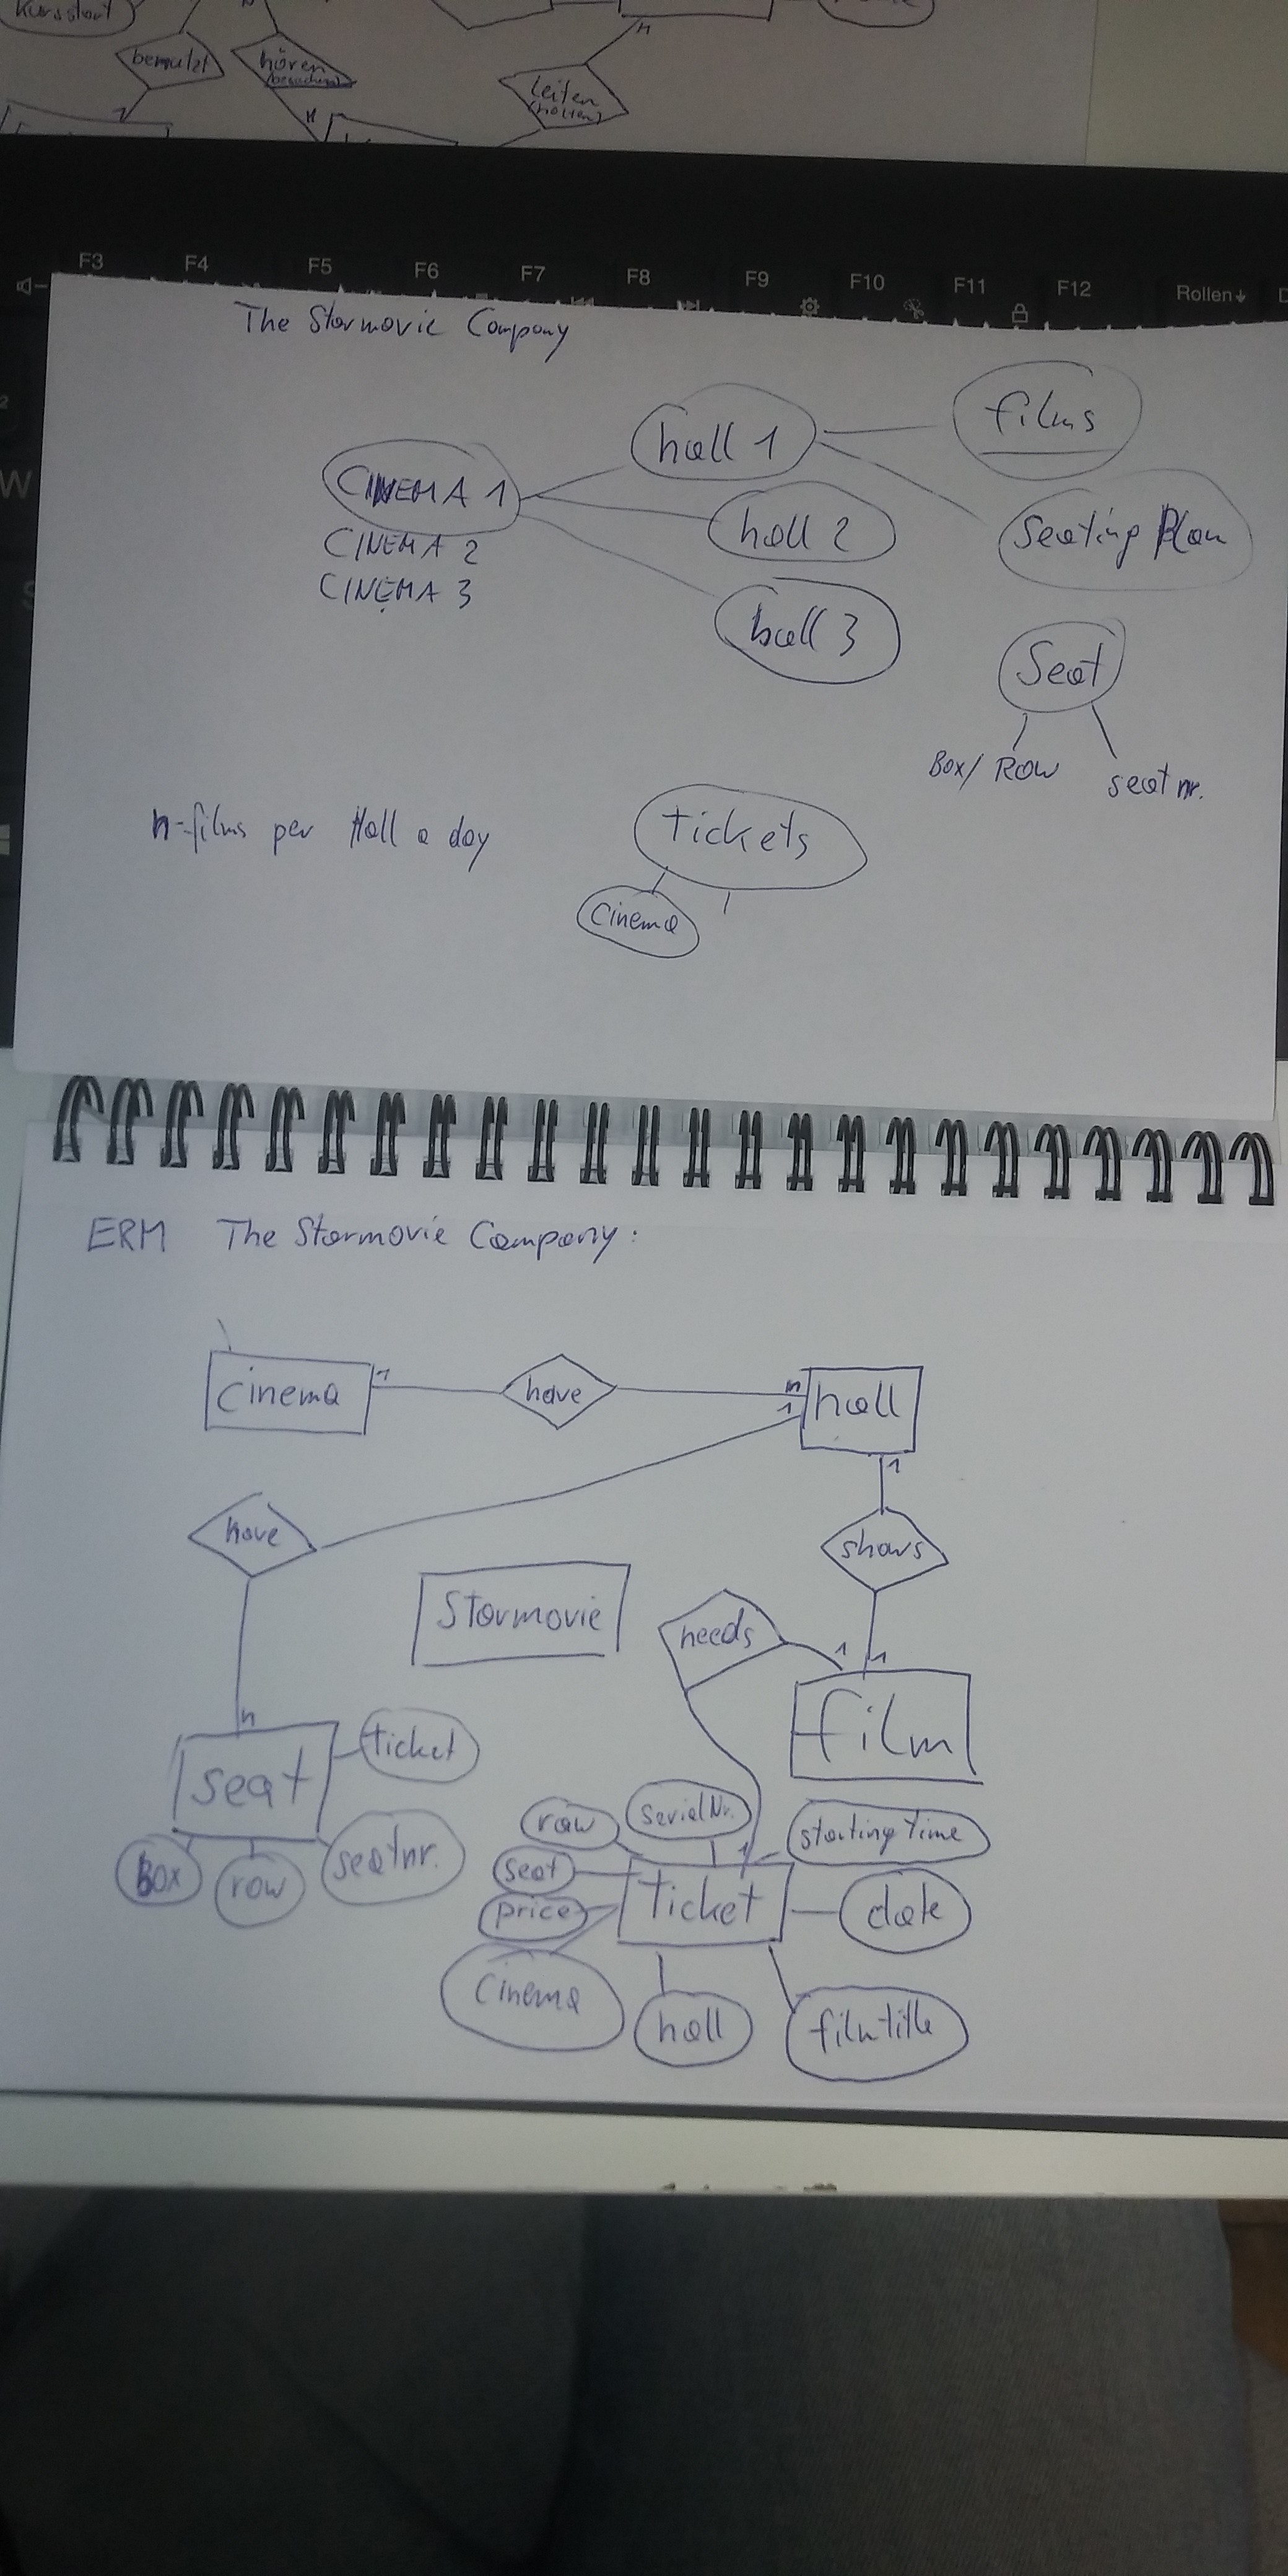 Kursstart
benutzt
hören
n
leiten
F3 F4 F5 F6 F7 F8 F9 F10 F11 F12 Rollen
W
The Starmovie Company
CINEMA 1
CINEMA 2
CINEMA 3
hall 1
hall 2
hall 3
films
Seating Plan
Seat
Box/ Row
seat nr.
n-films per Hall a day
tickets
cinema
ERM The Starmovie Company:
cinema
1
have
n
hall
1
1
have
shows
Starmovie
needs
1
1
film
n
seat
ticket
Box
row
seatnr.
raw
serialNr.
startingTime
seat
1
ticket
date
price
cinema
hall
filmtitle